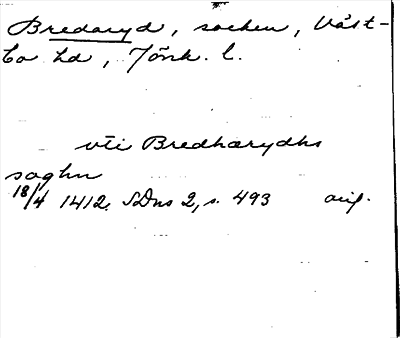 Bredaryd, socken, Väst-
bo hd, Jönk. l.
vti Bredharydhs
soghn
18/4 1412. SDns 2, s. 493 orig.